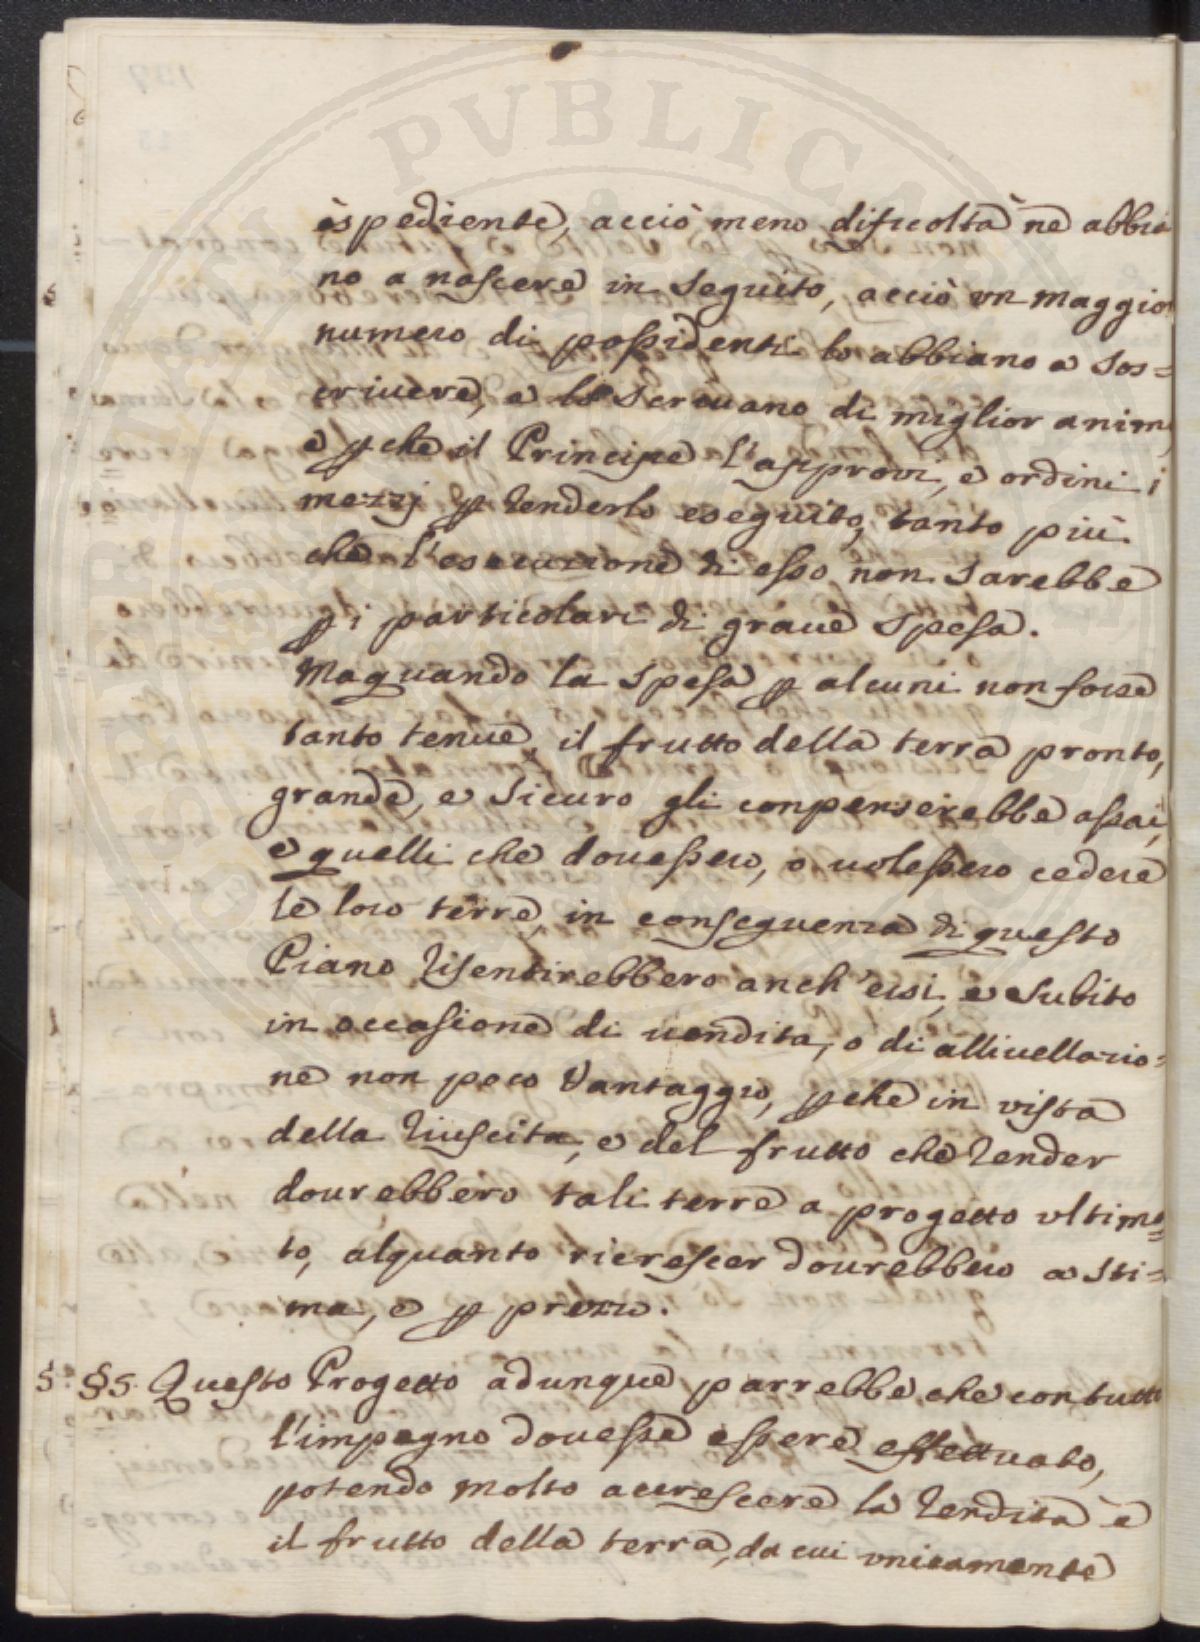 espediente, acciò meno dificoltà ne abbia
no a nascere in seguito, acciò un maggior
numero di possidenti lo abbiano a sos=
crivere, e lo scrivano di miglior animo,
e p che il Principe l'approvi, e ordini i
mezzj p renderlo eseguito, tanto più
che l'esecuzione di esso non sarebbe
p i particolari di grave spesa.
Ma quando la spesa p alcuni non fosse
tanto tenue, il frutto della terra pronto,
grande, e sicuro gli conpenserebbe assai,
e quelli che dovessero, o volessero cedere
le loro terre in conseguenza di questo
Piano risentirebbero anch'essi, e subito
in occasione di vendita, o di allivellazio=
ne non poco vantaggio, p che in vista
della riuscita, e del frutto che render
dovrebbero tali terre a progetto ultima=
to, alquanto ricrescer dovrebbero a sti=
ma, e p prezzo.
§ §5. Questo Progetto adunque parrebbe che con tutto
l'impegno dovesse essere effettuato,
potendo molto accrescere la rendita e
il frutto della terra, da cui unicamente
PVBLICA